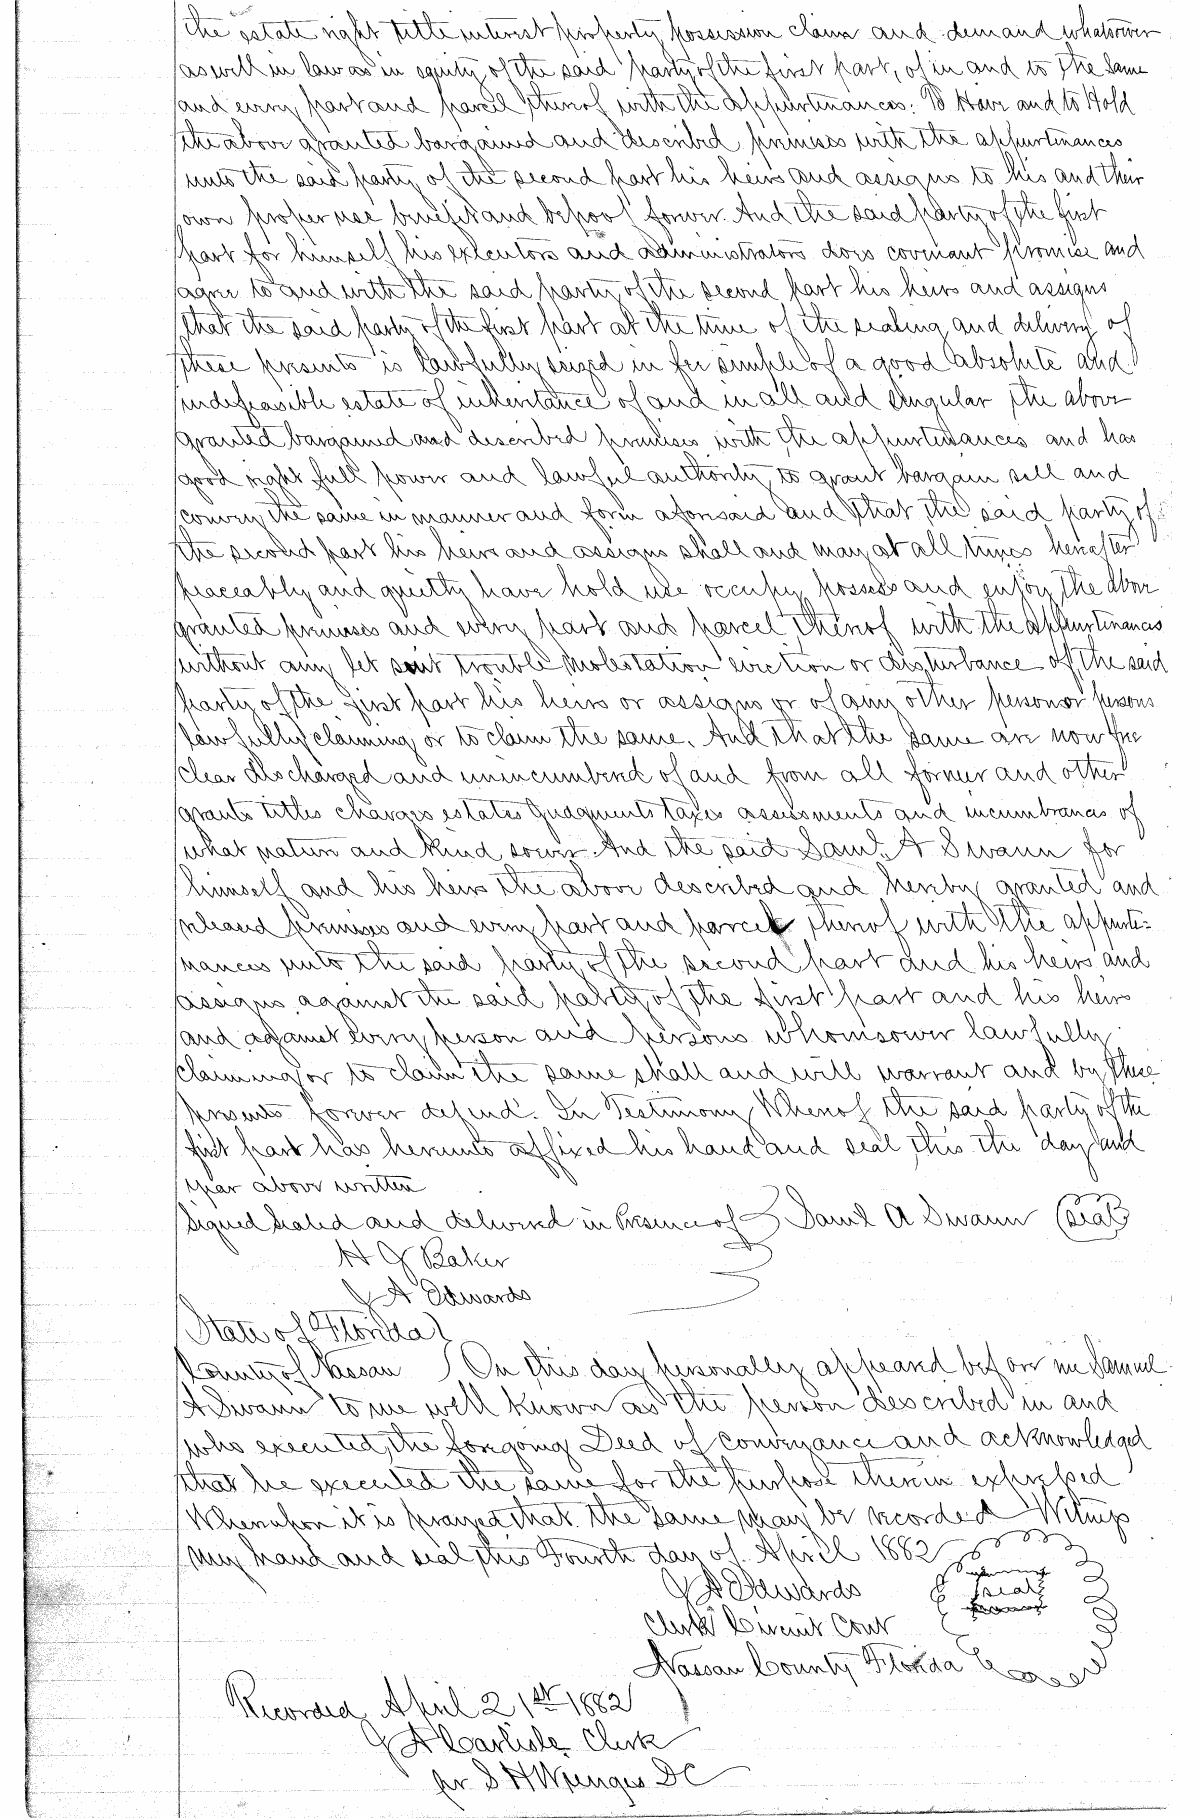 the estate right title interest property possession claim and demand whatsoever
as well in law as in equity of the said party of the first part, of in and to the same
and every part and parcel thereof with the appurtenances: To Have and to Hold
the above granted bargained and described premises with the appurtenances
unto the said party of the second part his heirs and assigns to his and their
own proper use benefit and behoof forever. And the said party of the first
part for himself his executors and administrators does covenant promise and
agree to and with the said party of the second part his heirs and assigns
that the said party of the first part at the time of the sealing and delivery of
these presents is lawfully seized in fee simple of a good absolute and
indefeasible estate of inheritance of and in all and singular the above
granted bargained and described premises with the appurtenances and has
good right full power and lawful authority to grant bargain sell and
convey the same in manner and form aforesaid and that the said party of
the second part his heirs and assigns shall and may at all times hereafter
peaceably and quietly have hold use occupy possess and enjoy the above
granted premises and every part and parcel thereof with the appurtenances
without any let suit trouble molestation eviction or disturbance of the said
party of the first part his heirs or assigns or of any other person or persons
lawfully claiming or to claim the same. And that the same are now free
clear discharged and unincumbered of and from all former and other
grants titles charges estates judgments taxes assessments and incumbrances of
what nature and kind soever. And the said Saml. A Swann for
himself and his heirs the above described and hereby granted and
released premises and every part and parcel thereof with the appurte=
nances unto the said party of the second part and his heirs and
assigns against the said party of the first part and his heirs
and against every person and persons whomsoever lawfully
claiming or to claim the same shall and will warrant and by these
presents forever defend. In Testimony Whereof the said party of the
first part has hereunto affixed his hand and seal this the day and
year above written
Signed Sealed and delivered in Presence of Saml A Swann (seal)
H J Baker
J A Edwards
State of Florida
County of Nassau On this day personally appeared before me Samuel
A Swann to me well known as the person described in and
who executed the foregoing Deed of conveyance and acknowledged
that he executed the same for the purpose therein expressed
Whereupon it is prayed that the same may be recorded Witness
my hand and seal this Fourth day of April 1882
J A Edwards seal
Clerk Circuit Court
Nassau County Florida
Recorded April 21st 1882
J A Carlisle Clerk
pr S H DC